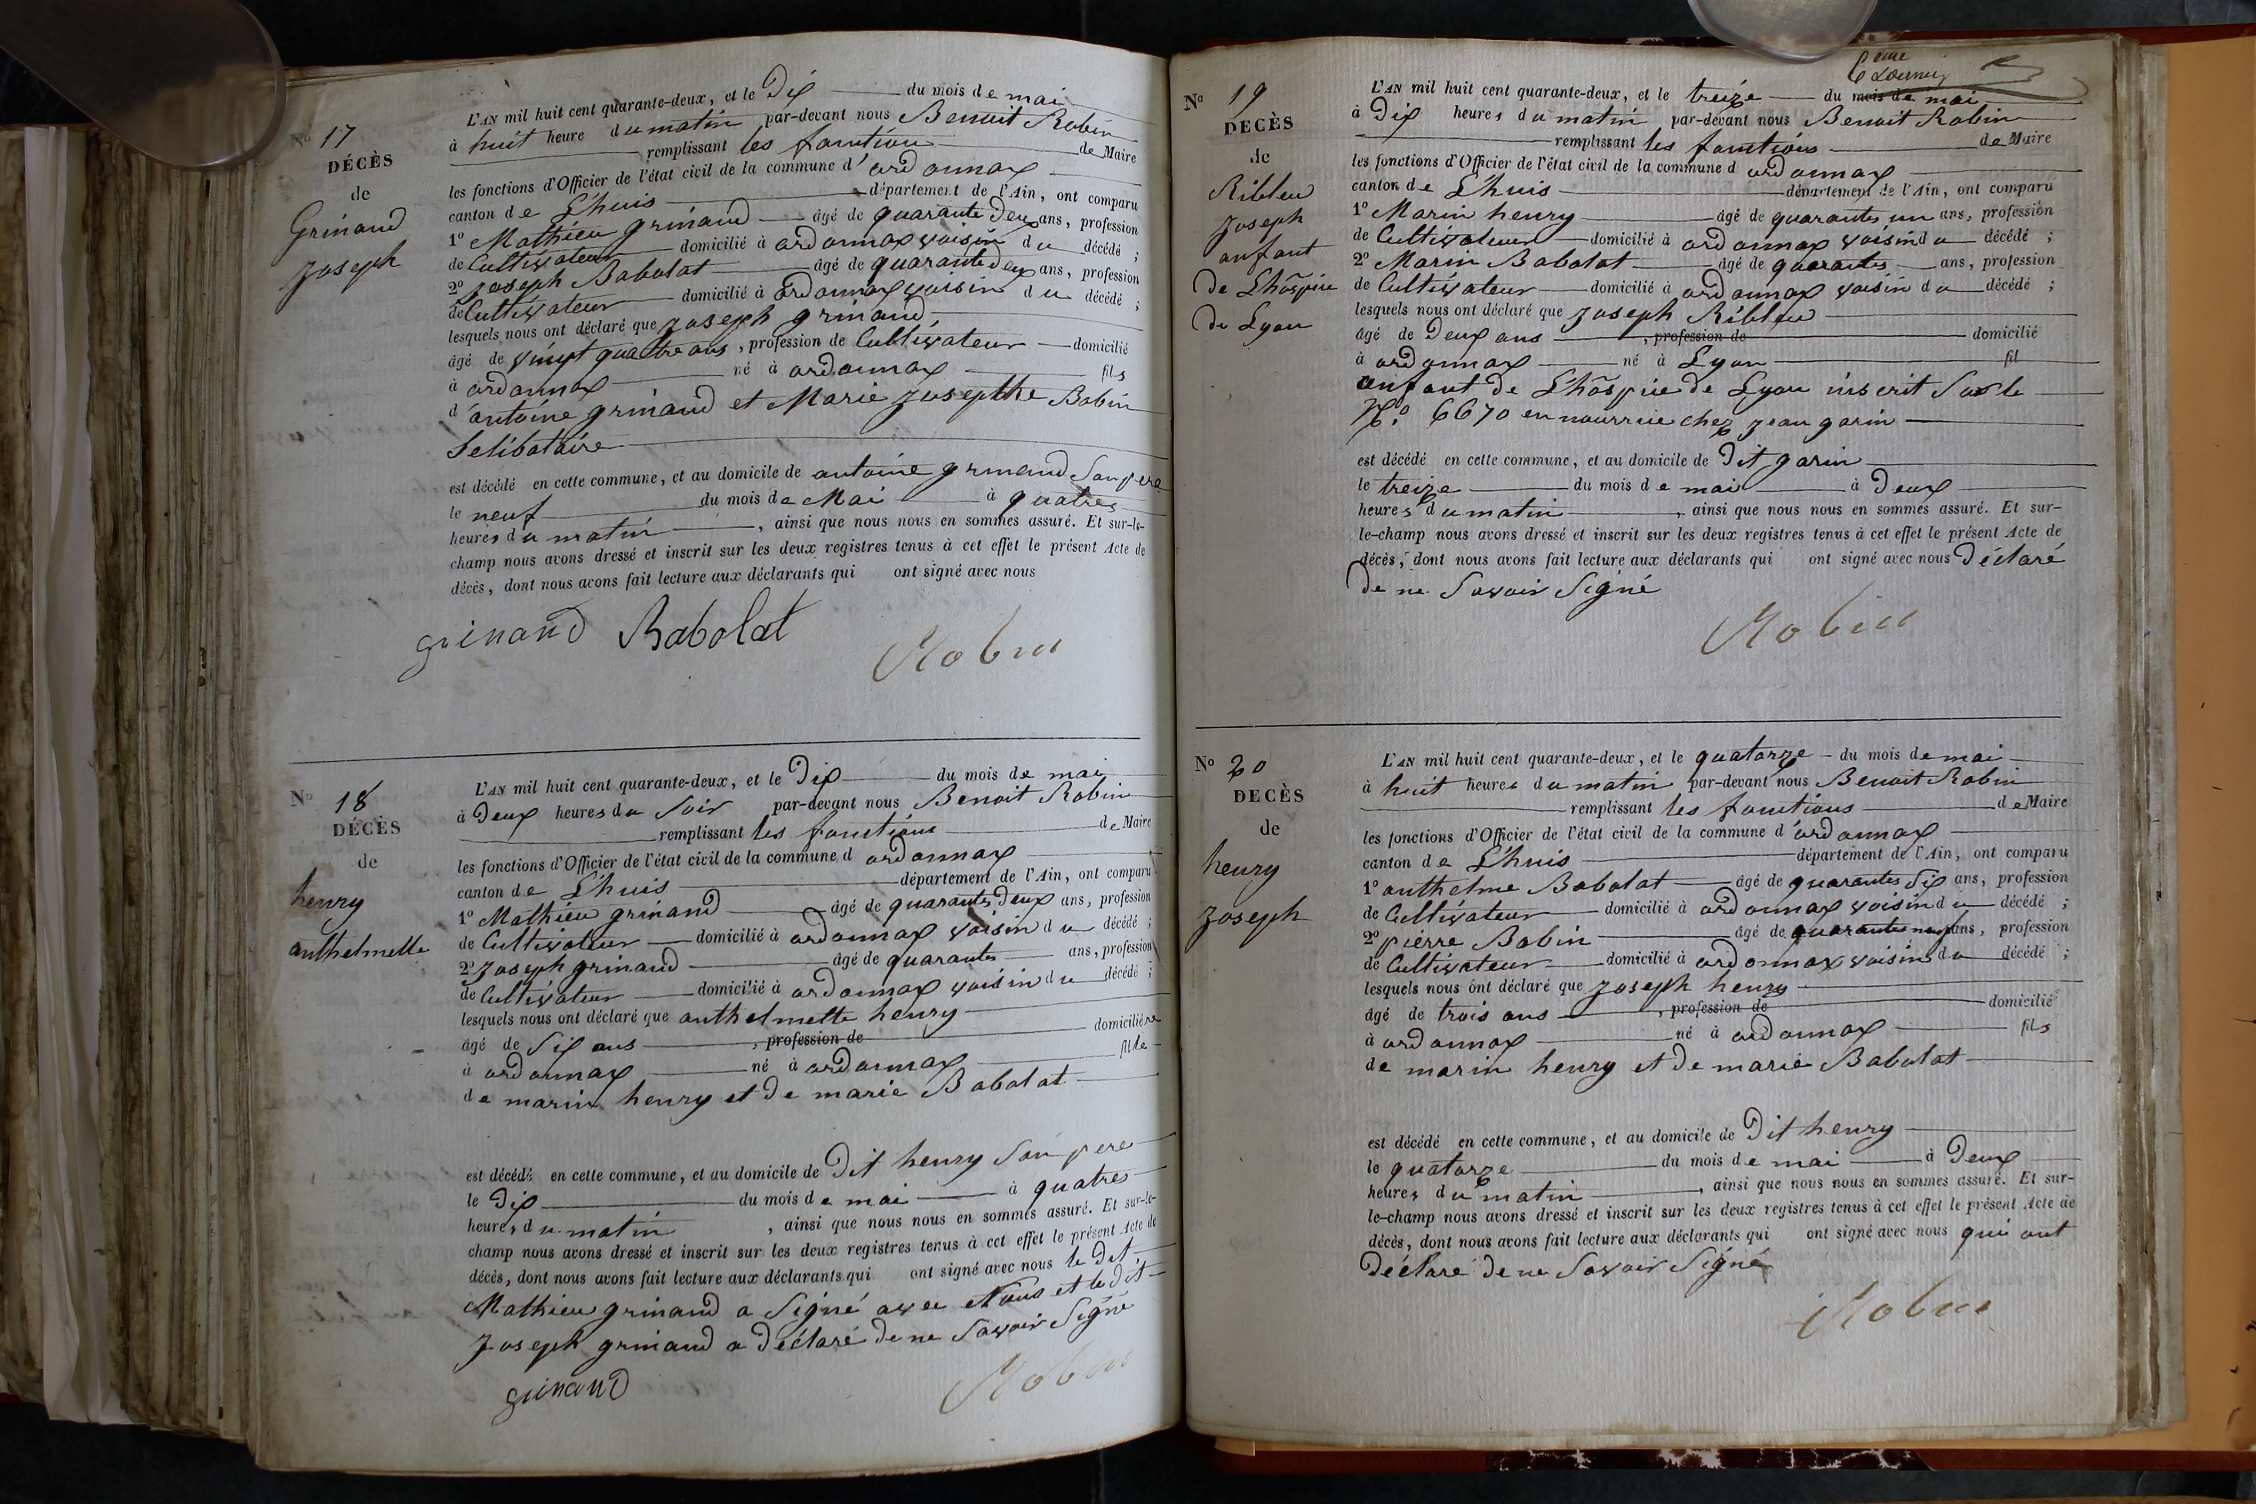 No 17
DÉCÈS
de
Grinand
joseph
L'AN mil huit cent quarante-deux, et le Dix du mois de mai
à huit heure du matin par-devant nous Benoit Robin
remplissant les fonctions de Maire
les fonctions d'Officier de l'état civil de la commune d'ordonnax
canton de L'huis département de l'Ain, ont comparu
1o Mathieu grinand âgé de quarante Deux ans, profession
de Cultivateur domicilié à ordonnax voisin du décédé ;
2o joseph Babolat âgé de quarante deux ans, profession
de Cultivateur domicilié à ordonnax voisin du décédé ;
lesquels nous ont déclaré que joseph grinand
âgé de vingt quatre ans, profession de Cultivateur domicilié
à ordonnax né à ordonnax fils
d'antoine grinand et Marie josepthe Bobin
Selibataire
est décédé en cette commune, et au domicile de antoine grinand Son pere
le neuf du mois de Mai à quatres
heures du matin, ainsi que nous nous en sommes assuré. Et sur-le-
champ nous avons dressé et inscrit sur les deux registres tenus à cet effet le présent Acte de
décès, dont nous avons fait lecture aux déclarants qui ont signé avec nous
grinand Babolat Robin
No 18
DÉCÈS
de
henry
anthelmette
L'AN mil huit cent quarante-deux, et le Dix du mois de mai
à Deux heures du Soir par-devant nous Benoit Robin
remplissant les fonctions de Maire
les fonctions d'Officier de l'état civil de la commune d ordonnax
canton de L'huis département de l'Ain, ont comparu
1o Mathieu grinand âgé de quarantes Deux ans, profession
de Cultivateur domicilié à ordonnax voisin du décédé ;
2o joseph grinand âgé de quarantes ans, profession
de Cultivateur domicilié à ordonnax voisin du décédé ;
lesquels nous ont déclaré que anthelmette henry
âgé de Six ans, profession de domiciliére
à ordonnax né à ordonnax fille
de marin henry et De marie Babolat
est décédé en cette commune, et au domicile de Dit henry Son pere
le Dix du mois de mai à quatres
heures du matin, ainsi que nous nous en sommes assuré. Et sur-le-
champ nous avons dressé et inscrit sur les deux registres tenus à cet effet le présent Acte de
décès, dont nous avons fait lecture aux déclarants qui ont signé avec nous le Dit
Mathieu grinand a Signé avec Nous et le Dit
joseph grinand a Déclaré De ne Savoir Signé
grinand Robin
No 19
DECÈS
de
Ribleu
joseph
anfant
De L'hôspice
De Lyon
L'AN mil huit cent quarante-deux, et le treize du mois de mai
à Dix heures du matin par-devant nous Benoit Robin
remplissant les fonctions de Maire
les fonctions d'Officier de l'état civil de la commune d ordonnax
canton de L'huis département de l'Ain, ont comparu
1o Marin henry âgé de quarantes un ans, profession
de Cultivateur domicilié à ordonnax voisin du décédé ;
2o Marin Babolat âgé de quarantes ans, profession
de Cultivateur domicilié à ordonnax voisin du décédé ;
lesquels nous ont déclaré que joseph Ribleu
âgé de Deux ans, profession de domicilié
à ordonnax né à Lyon fil
anfant de L'hôspice De Lyon inscrit Sur le
No. 6670 en nourrice chez jean garin
est décédé en cette commune, et au domicile de Dit garin
le treize du mois de mai à Deux
heures du matin, ainsi que nous nous en sommes assuré. Et sur-
le-champ nous avons dressé et inscrit sur les deux registres tenus à cet effet le présent Acte de
décès, dont nous avons fait lecture aux déclarants qui ont signé avec nous Déclaré
De ne Savoir Signé
Robin
No 20
DECÈS
de
henry
joseph
L'AN mil huit cent quarante-deux, et le quatorze du mois de mai
à huit heures du matin par-devant nous Benoit Robin
remplissant les fonctions de Maire
les fonctions d'Officier de l'état civil de la commune d'ordonnax
canton de L'huis département de l'Ain, ont comparu
1o anthelme Babolat âgé de quarantes Six ans, profession
de Cultivateur domicilié à ordonnax voisin du décédé ;
2o pierre Bobin âgé de quarantes neuf ans, profession
de Cultivateur domicilié à ordonnax voisin du décédé ;
lesquels nous ont déclaré que joseph henry
âgé de trois ans, profession de domicilié
à ordonnax né à ordonnax fils
de marin henry et De marie Babolat
est décédé en cette commune, et au domicile de Dit henry
le quatorze du mois de mai à Deux
heures du matin, ainsi que nous nous en sommes assuré. Et sur-
le-champ nous avons dressé et inscrit sur les deux registres tenus à cet effet le présent Acte de
décès, dont nous avons fait lecture aux déclarants qui ont signé avec nous qui ont
Déclaré de ne Savoir Signé
Robin